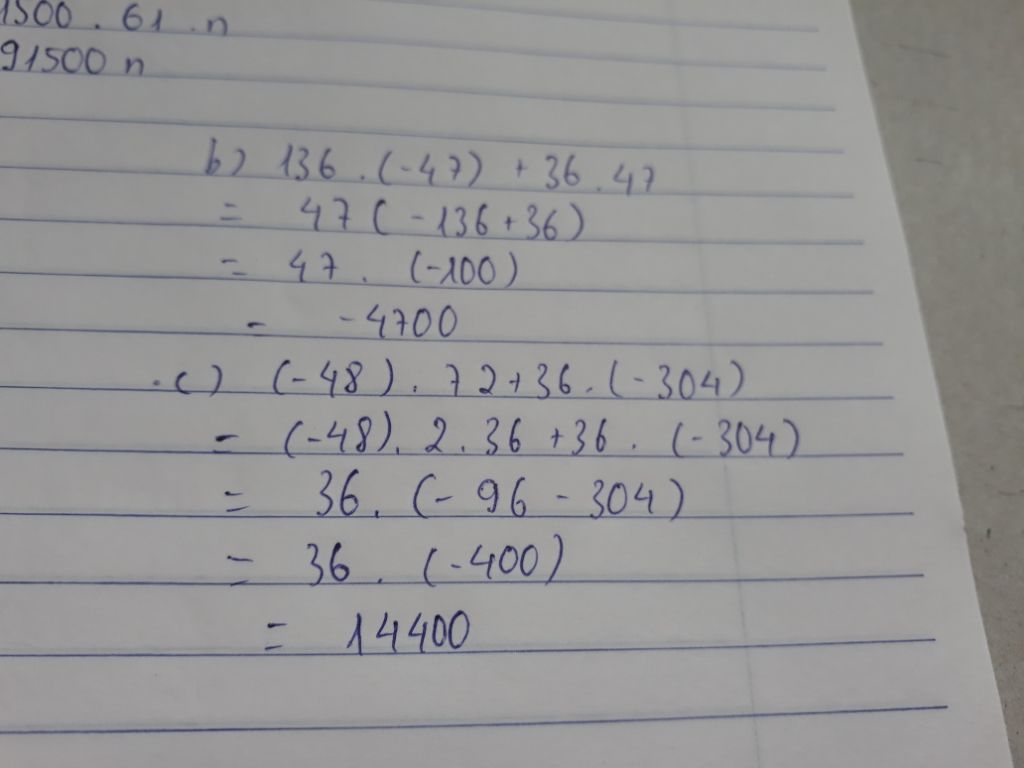 1500 . 61 . n
91500 n
b) 136 . (-47) + 36 . 47
= 47 ( -136 + 36)
= 47 . (-100)
= -4700
.c) (-48) . 72 + 36 . (-304)
= (-48) . 2 . 36 + 36 . (-304)
= 36 . (- 96 - 304)
= 36 . (-400)
= 14400